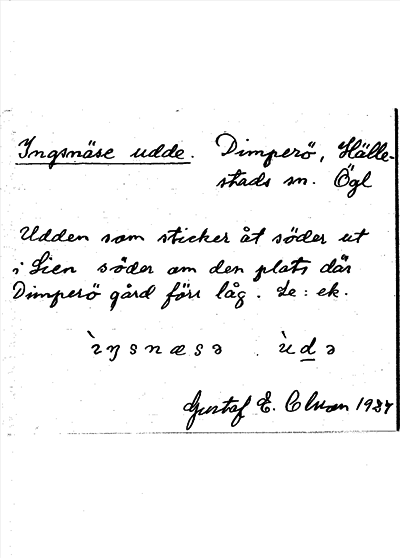 Yngsnäse udde. Dimperö, Hälle-
stads sn. Ögl
Udden som sticker åt söder ut
i Sien söder om den plats där
Dimperö gård förr låg. Se: ek.
`ıŋsnæsə `udə
Gustaf E. Clvan 1934